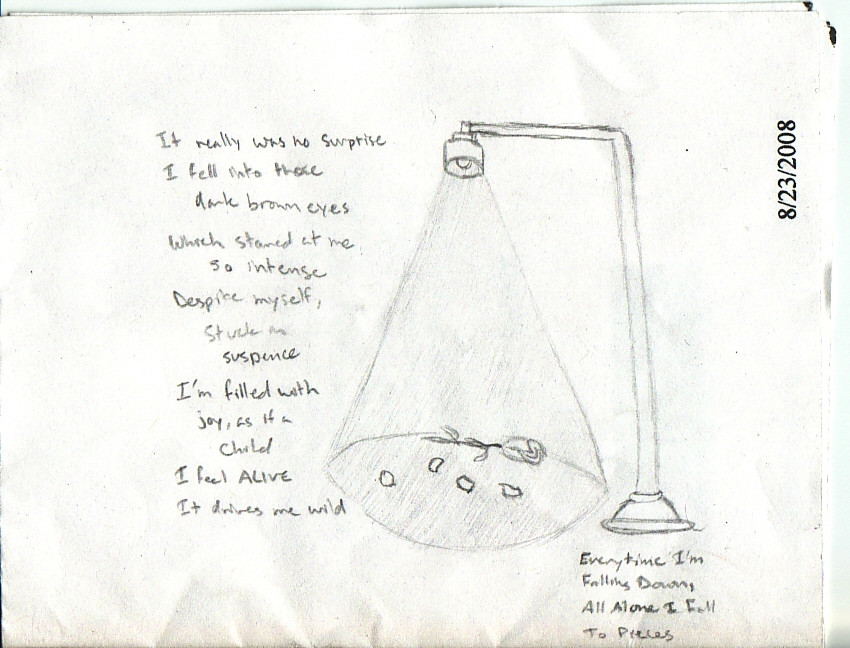 It really was no surprise
I fell into those
dark brown eyes
Which stared at me
so intense
Despite myself,
stuck in
suspence
I'm filled with
joy, as if a
child
I feel ALIVE
It drives me wild
8/23/2008
Everytime I'm
Falling Down,
All Alone I Fall
To Pieces